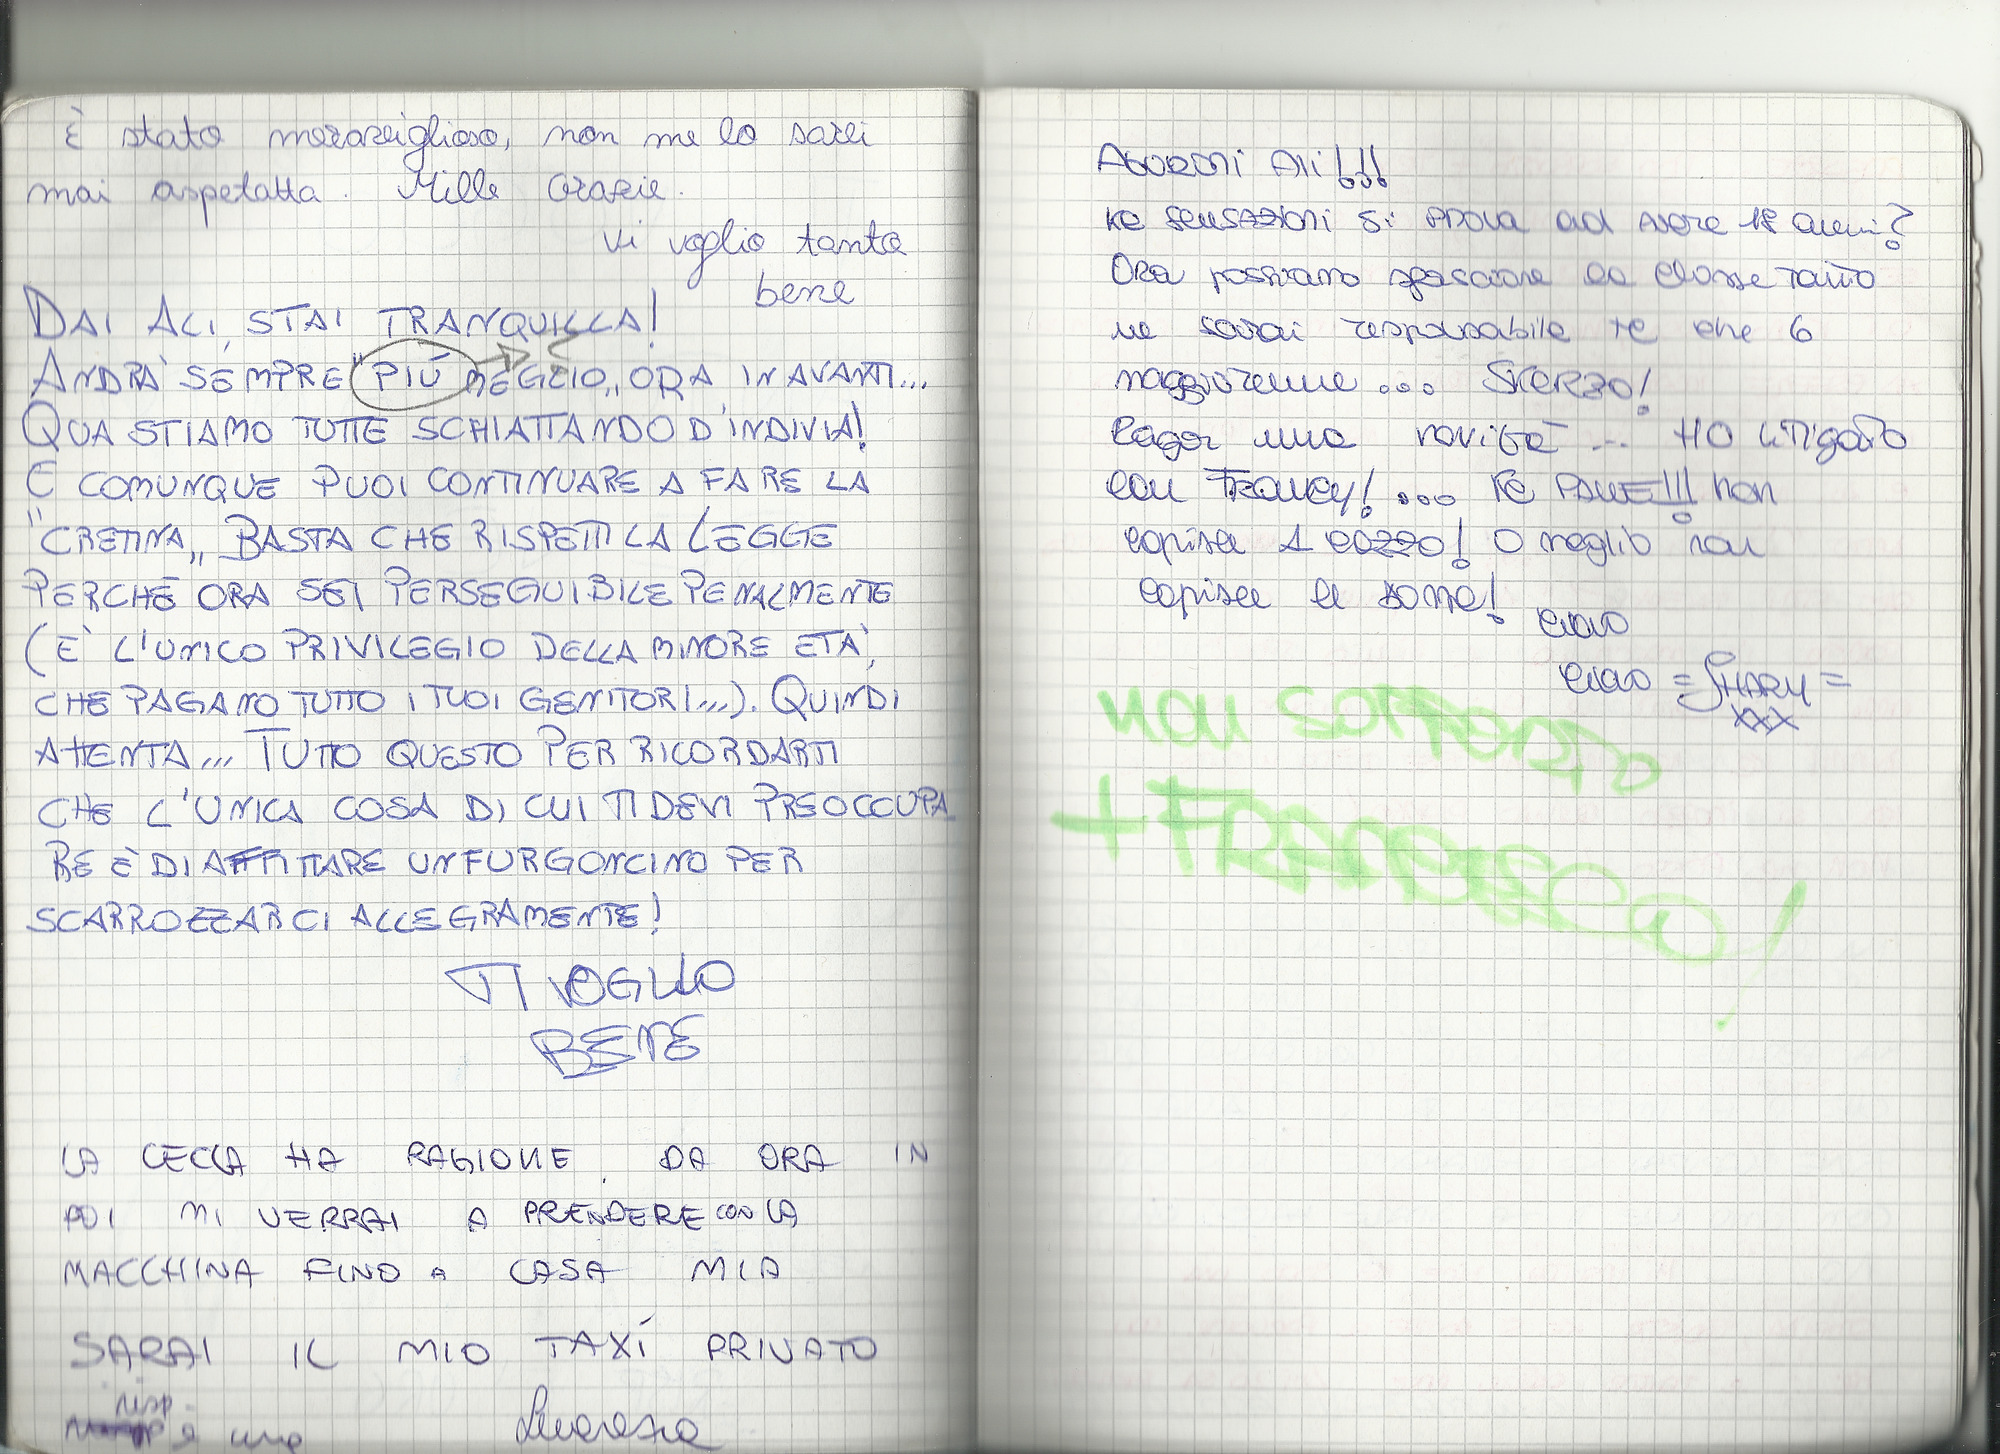 È stato meraviglioso, non me lo sarei
mai aspettatta. Mille Grazie.
Vi voglio tanto
bene
DAI ALI, STAI TRANQUILLA!
ANDRÀ SEMPRE "PIÙ MEGLIO,, ORA IN AVANTI...
QUA STIAMO TUTTE SCHIATTANDO D'INDIVIA!
E COMUNQUE PUOI CONTINUARE A FARE LA
"CRETINA,, BASTA CHE RISPETTI LA LEGGE
PERCHÈ ORA SEI PERSEGUIBILE PENALMENTE
(È L'UNICO PRIVILEGIO DELLA MINORE ETÀ,
CHE PAGANO TUTTO I TUOI GENITORI...). QUINDI
ATTENTA... TUTTO QUESTO PER RICORDARTI
CHE L'UNICA COSA DI CUI TI DEVI PREOCCUPA
RE È DI AFFITTARE UN FURGONCINO PER
SCARROZZARCI ALLEGRAMENTE!
TI VOGLIO
BENE
LA CECCA HA RAGIONE, DA ORA IN
POI MI VERRAI A PRENDERE CON LA
MACCHINA FINO A CASA MIA
SARAI IL MIO TAXÍ PRIVATO
risp.
e una
AUGURONI ALI!!!
KE SENSAZIONI SI PROVA ad avere 18 anni?
Ora possiamo sfasciare la classe tanto
ne sarai responsabile te che 6
maggiorenne ... SKERZO!
Raga una novità ... HO LITIGATO
con Francy! ... KE PALLE!!! non
capisce 1 cazzo! O meglio non
capisce le donne!
ciao
ciao = SHARY =
xxx
NON SOPPORTO
+ FRANCESCO!